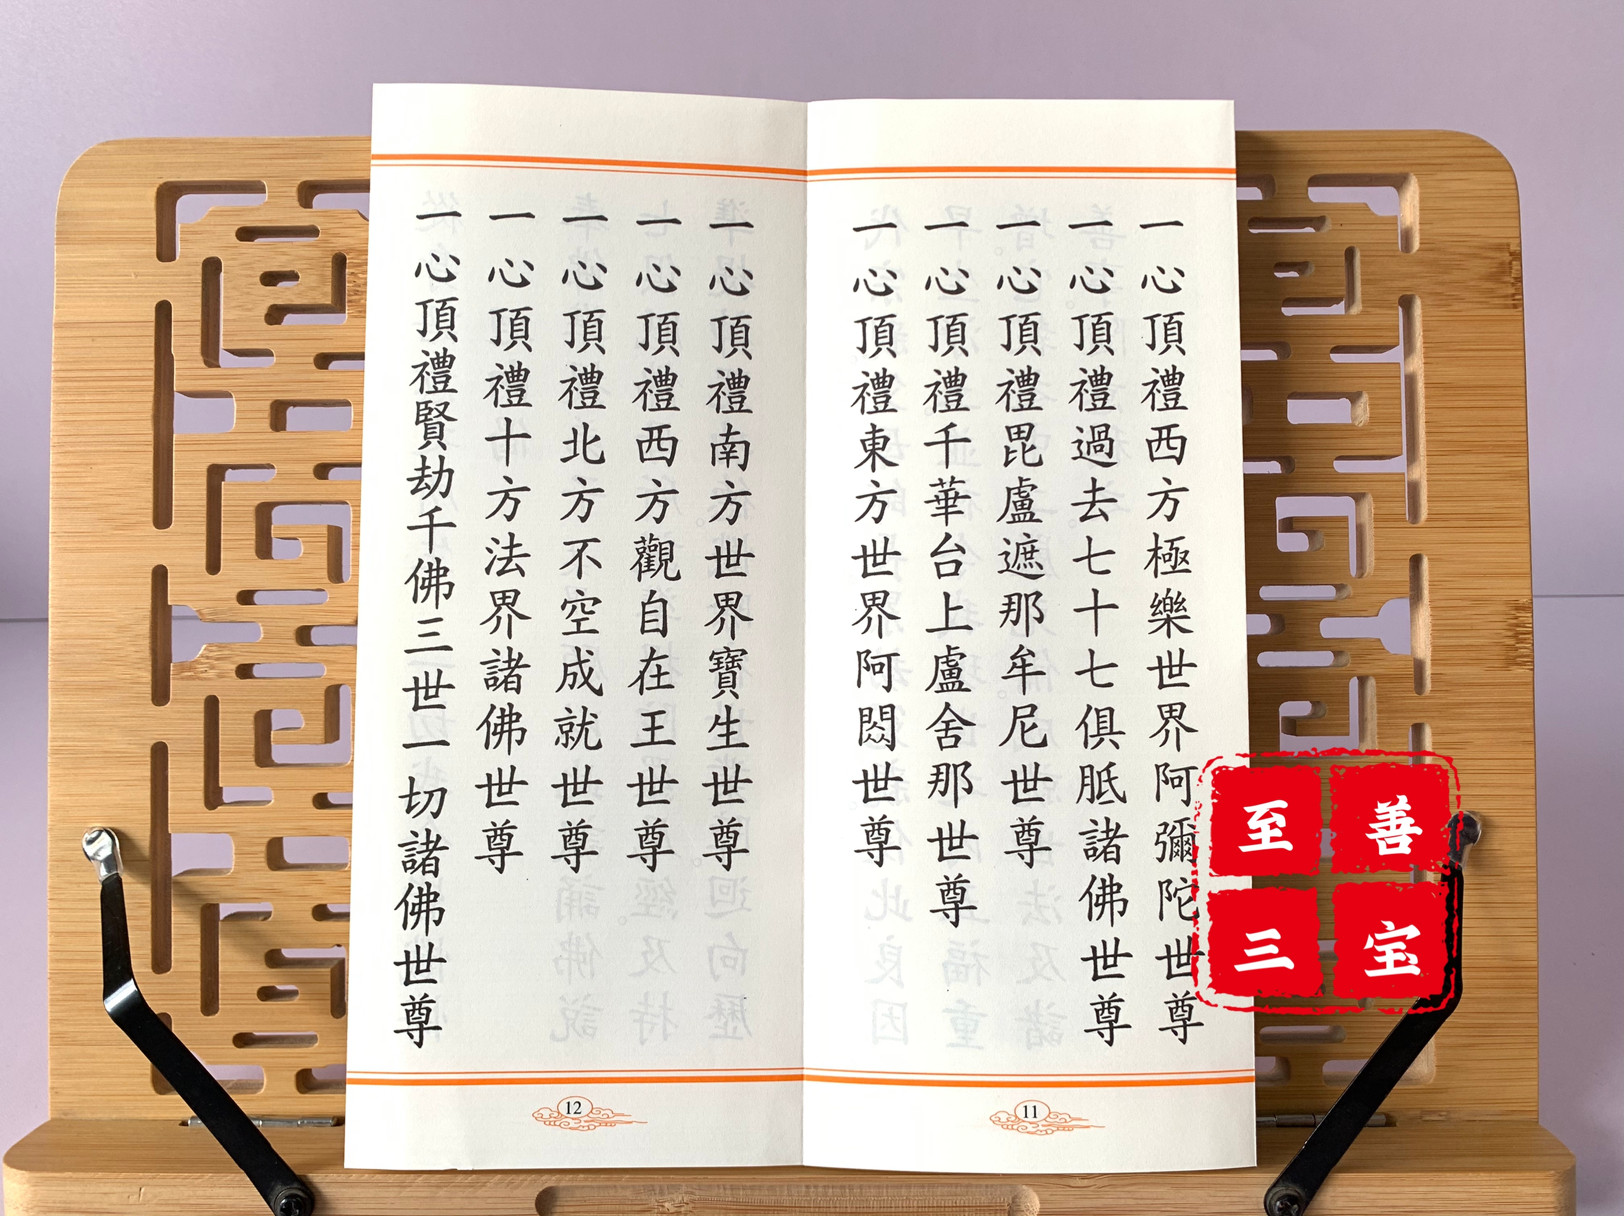 一心頂禮西方極樂世界阿彌陀世尊
一心頂禮過去七十七俱胝諸佛世尊
一心頂禮毘盧遮那牟尼世尊
一心頂禮千華台上盧舍那世尊
一心頂禮東方世界阿閦世尊
11
一心頂禮南方世界寶生世尊
一心頂禮西方觀自在王世尊
一心頂禮北方不空成就世尊
一心頂禮十方法界諸佛世尊
一心頂禮賢劫千佛三世一切諸佛世尊
12
至善
三宝